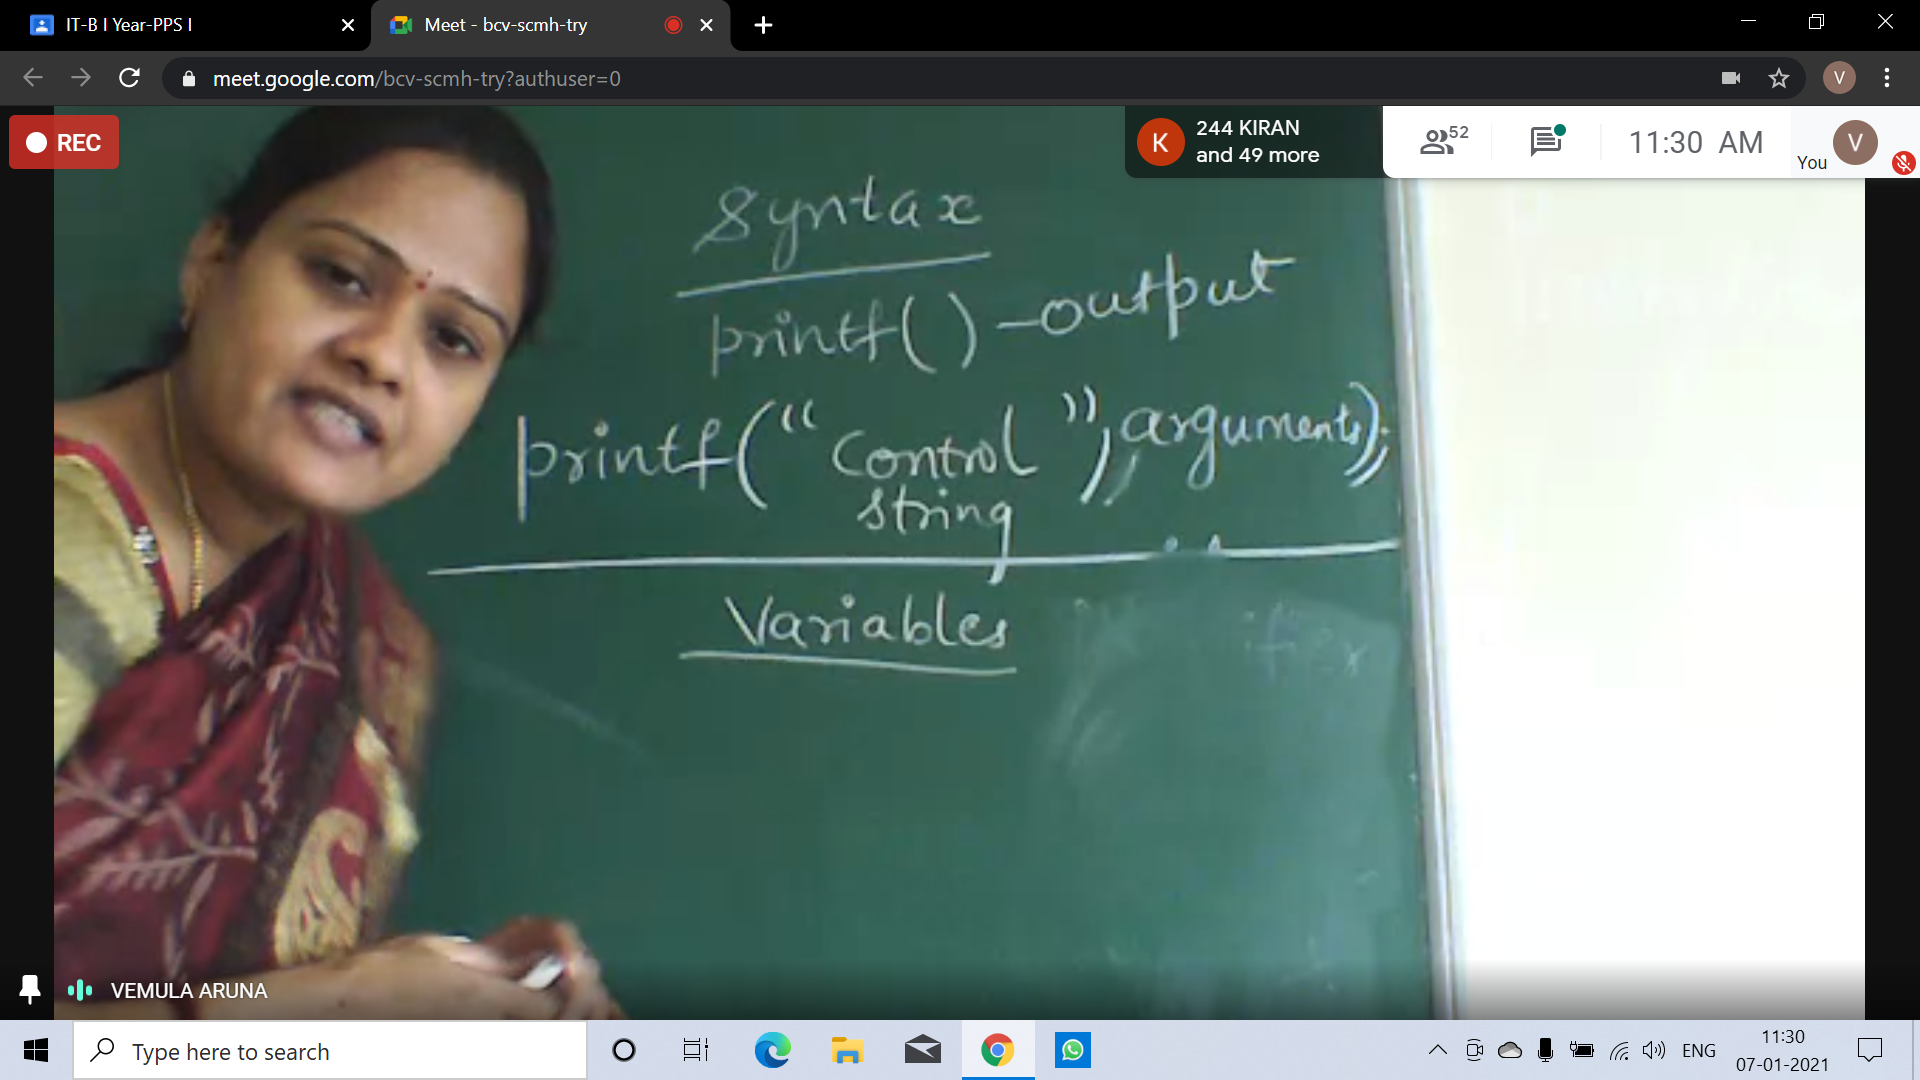 IT-B I Year-PPS I
Meet - bcv-scmh-try
meet.google.com/bcv-scmh-try?authuser=0
V
REC
K
244 KIRAN
and 49 more
52
11:30 AM
You
V
Syntax
printf() - output
printf(" control string ", arguments);
Variables
VEMULA ARUNA
Type here to search
ENG
11:30
07-01-2021